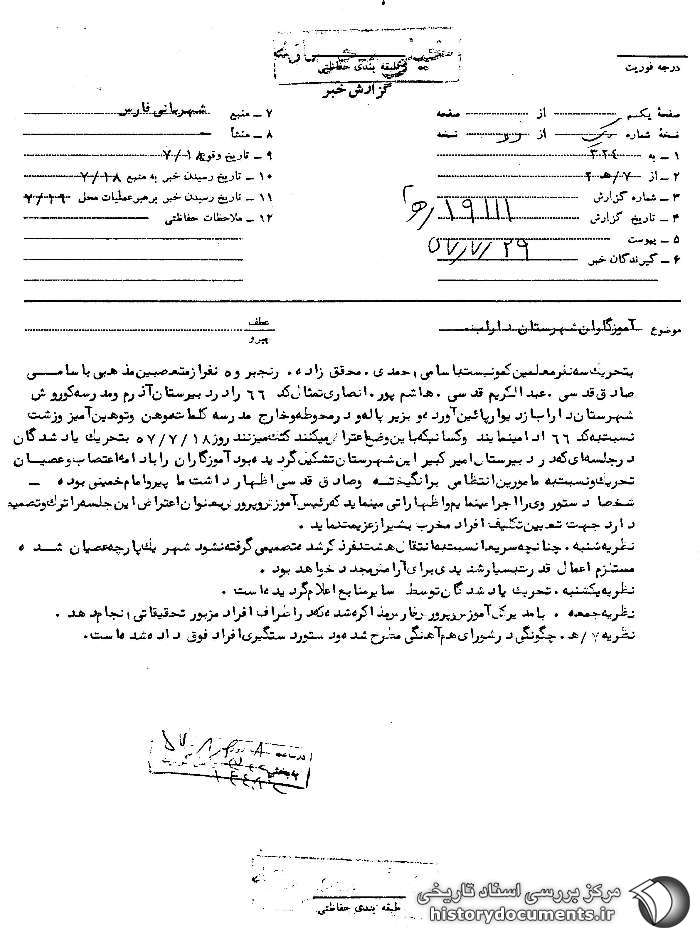 طبقه بندی حفاظتی
درجه فوریت
گزارش خبر
صفحهٔ یکم از صفحه
نسخهٔ شماره از نسخه
۱ ـ به ۳۲۴
۲ ـ از ۷/ هـ ۲
۳ ـ شماره گزارش ۱۹۱۱۱
۴ ـ تاریخ گزارش
۵ ـ پیوست ۵۷/۷/۲۹
۶ ـ گیرندگان خبر
۷ ـ منبع شهربانی فارس
۸ ـ منشأ
۹ ـ تاریخ وقوع ۷/۱۸
۱۰ ـ تاریخ رسیدن خبر به منبع ۷/۱۸
۱۱ ـ تاریخ رسیدن خبر برهبرعملیات محل ۷/۱۹
۱۲ ـ ملاحظات حفاظتی
موضوع آموزگاران شهرستان داراب
عطف
پیرو
بتحریک سه نفر معلمین کمونیست باسامی احمدی . محقق زاده . رنجبر و ۵ نفر از متعصبین مذهبی باسامی
صادق قدسی . عبدالکریم قدسی . هاشم پور . انصاری تمثال کد ۶۶ را در دبیرستان آذرم و مدرسه کوروش
شهرستان داراب از دیوار پائین آورده و بزیر پا له و در محوطه و خارج مدرسه کلمات موهن و توهین آمیز و زشت
نسبت به کد ۶۶ ادا مینمایند و کسانیکه باین وضع اعتراض میکنند کتک میزنند روز ۵۷/۷/۱۸ بتحریک یاد شدگان
در جلسه‌ای که در دبیرستان امیر کبیر این شهرستان تشکیل گردیده بود آموزگاران را بادامه اعتصاب و عصیان
تحریک و نسبت به مامورین انتظامی برانگیخته و صادق قدسی اظهار داشت ما پیرو امام خمینی بوده ـ
شخصا دستور وی را اجرا مینمایم و اظهاراتی مینماید که رئیس آموزش و پرورش بعنوان اعتراض این جلسه را ترک و تصمیم
دارد جهت تعیین تکلیف افراد مخرب بشیراز عزیمت نماید .
نظریه شنبه . چنانچه سریعا نسبت به انتقال هشت نفر ذکر شده تصمیمی گرفته نشود شهر یک پارچه عصیان شده
مستلزم اعمال قدرت بسیار شدیدی برای آرامش مجدد خواهد بود .
نظریه یکشنبه . تحریک یاد شدگان توسط سایر منابع اعلام گردیده است .
نظریه جمعه . با مدیر کل آموزش و پرورش فارس مذاکره شد که در اطراف افراد مزبور تحقیقاتی انجام دهد .
نظریه ۷/ هـ . چگونگی در شورای هم آهنگی مطرح شده و دستور دستگیری افراد فوق داده شده است .
طبقه بندی حفاظتی
مرکز بررسی اسناد تاریخی
historydocuments.ir